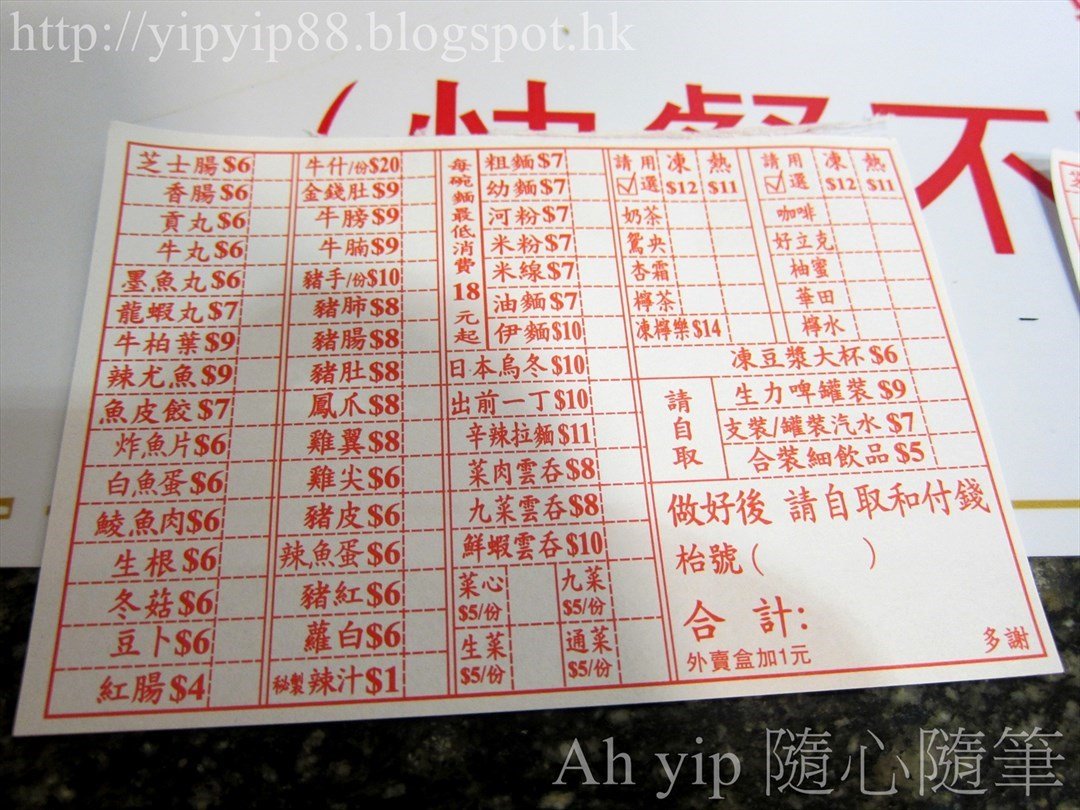 http://yipyip88.blogspot.hk
芝士腸$6
香腸$6
貢丸$6
牛丸$6
墨魚丸$6
龍蝦丸$7
牛柏葉$9
辣尤魚$9
魚皮餃$7
炸魚片$6
白魚蛋$6
鯪魚肉$6
生根$6
冬菇$6
豆卜$6
紅腸$4
牛什/份$20
金錢肚$9
牛膀$9
牛腩$9
豬手/份$10
豬肺$8
豬腸$8
豬肚$8
鳳爪$8
雞翼$8
雞尖$6
豬皮$6
辣魚蛋$6
豬紅$6
蘿白$6
秘製辣汁$1
每碗麵最低消費18元起
粗麵$7
幼麵$7
河粉$7
米粉$7
米線$7
油麵$7
伊麵$10
日本烏冬$10
出前一丁$10
辛辣拉麵$11
菜肉雲吞$8
九菜雲吞$8
鮮蝦雲吞$10
菜心$5/份
九菜$5/份
生菜$5/份
通菜$5/份
請用☑選 凍$12 熱$11
奶茶
鴛央
杏霜
檸茶
凍檸樂$14
請用☑選 凍$12 熱$11
咖啡
好立克
柚蜜
華田
檸水
凍豆漿大杯$6
請自取
生力啤罐裝$9
支裝/罐裝汽水$7
合裝細飲品$5
做好後 請自取和付錢
枱號( )
合 計:
外賣盒加1元
多謝
Ah yip 隨心隨筆